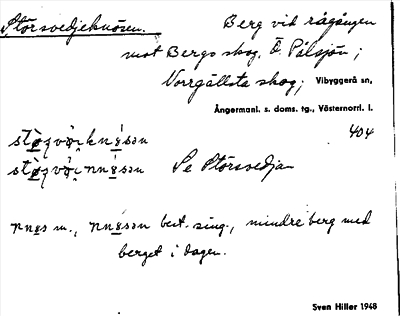 Störsvedjeknösen. Berg vid rågången
mot Bergs skog, Ö. Pålsjön;
Norrgållsta skog; Vibyggerå sn,
Ångermanl. s. doms. tg., Västernorrl. l.
404
Se Storsvedjan
nnøs m., nnøsən best. sing., mindre berg med
berget i dagen.
Sven Hiller 1948